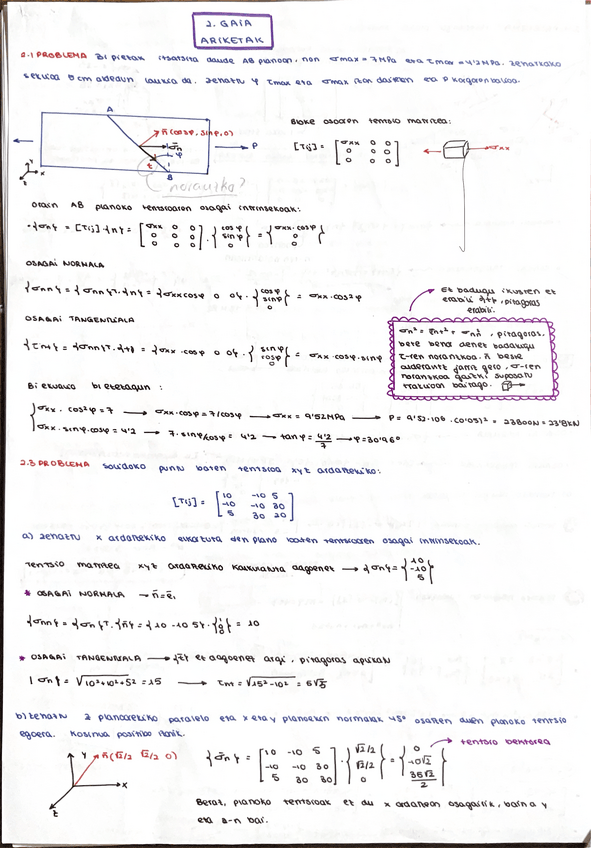 2. GAIA
ARIKETAK
2.1 PROBLEMA Bi pietak itsatsita daude AB planoan, non σmax = 7 MPa eta τmax = 4'2 MPa. Zeharkako
sekzioa 5 cm aldedun laukia da. Zehaztu φ τmax eta σmax izan daitezen eta P kargaren balioa.
A
n̄(cosφ, sinφ, 0)
σ̄n
φ
t
P
B
Y
X
Z
norantzko?
Bloke osoaren tentsio matrizea:
[Tij] = [σxx 0 0
0 0 0
0 0 0]
σxx
Orain AB planoko tentsioaren osagai intrinsekoak:
· {σn} = [Tij]·{n} = [σxx 0 0
0 0 0
0 0 0] · {cosφ
sinφ
0} = {σxx·cosφ
0
0}
OSAGAI NORMALA
{σnn} = {σn}T·{n} = {σxxcosφ 0 0}·{cosφ
sinφ
0} = σxx·cos²φ
Ez badugu ikusten ez
erabili {t}, pitagoras
erabili.
OSAGAI TANGENTZIALA
{τnt} = {σn}T·{t} = {σxx·cosφ 0 0}·{sinφ
cosφ
0} = σxx·cosφ·sinφ
σn² = τnt² + σnn², pitagoras.
bete behar denez badakigu
τ-ren norantzkoa. n̄ beste
alderantz jarriz gero, σ-ren
norantzkoa gaizki suposatu
trakzioan baitago.
Bi ekuazio bi ezezagun:
σxx·cos²φ = 7 → σxx·cosφ = 7/cosφ → σxx = 9'52 MPa → P = 9'52·10⁶·(0'05)² = 23800N = 23'8kN
σxx·sinφ·cosφ = 4'2 → 7·sinφ/cosφ = 4'2 → tanφ = 4'2/7 → φ = 30'96°
2.3 PROBLEMA solidoko puntu baten tentsioa xyz ardatzekiko:
[Tij] = [10 -10 5
-10 -10 30
5 30 20]
a) Zehaztu x ardatzekiko elkartuta den plano baten tentsioaren osagai intrinsekoak.
Tentsio matrizea xyz ardatzekiko kalkulatuta dagoenez → {σn} = {10
-10
5}
* OSAGAI NORMALA → n̄ = ē₁
{σnn} = {σn}T·{n̄} = {10 -10 5}·{1
0
0} = 10
* OSAGAI TANGENTZIALA → {t̄} ez dagoenez argi, pitagoras aplikatu
|σn| = √10²+10²+5² = 15 → τnt = √15²-10² = 5√5
b) Zehaztu z planoarekiko paralelo eta x eta y planoekin normalak 45° osatzen duen planoko tentsio
egoera. Kosinua positibo izanik.
Y
n̄(√2/2 √2/2 0)
X
Z
{σ̄n} = [10 -10 5
-10 -10 30
5 30 30] · {√2/2
√2/2
0} = {0
-10√2
35√2/2}
tentsio bektorea
Beraz, planoko tentsioak ez du x ardatzean osagairik, baina y
eta z-n bai.